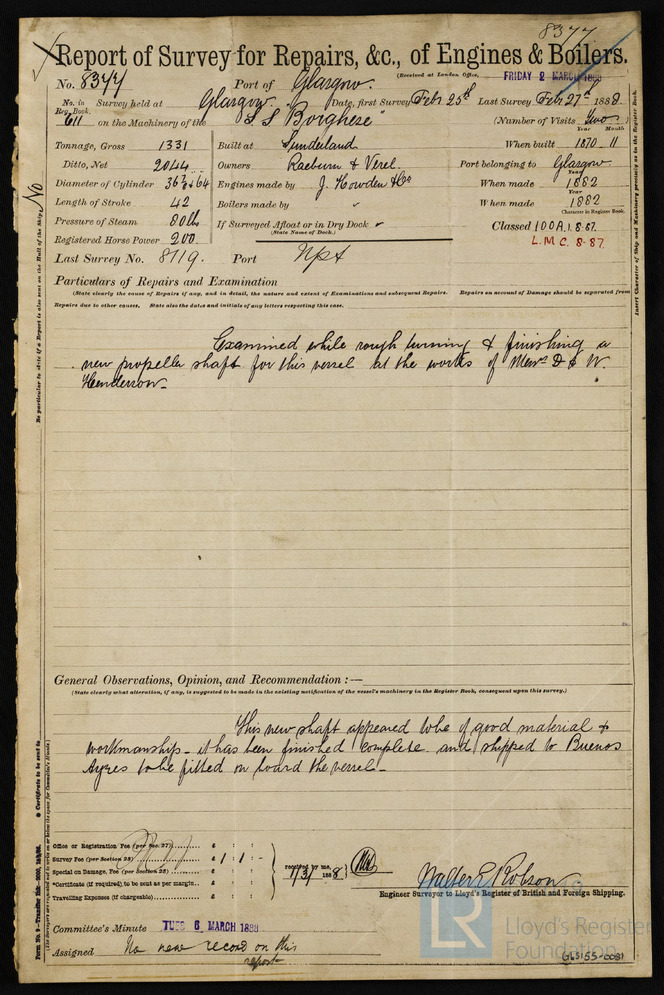 8377
Report of Survey for Repairs, &c., of Engines & Boilers.
(Received at London Office, FRIDAY 2 MARCH 1888
No. 8377 Port of Glasgow.
No. in Reg. Book. 611 Survey held at Glasgow Date, first Survey Feb 25th Last Survey Feb 27th 1888.
on the Machinery of the "S S Borghese" (Number of Visits Two)
Tonnage, Gross 1331 Built at Sunderland When built Year 1870 Month 11
Ditto, Net 2044 Owners Raeburn & Verel. Port belonging to Glasgow
Diameter of Cylinder & 64 Engines made by J. Howden & Co When made Year 1882
Length of Stroke 42 Boilers made by " When made Year 1882
Pressure of Steam 80 lb If Surveyed Afloat or in Dry Dock
(State Name of Dock.)
Character in Register Book.
Classed 100A.1.8.87.
Registered Horse Power 200. L.M.C. 8.87
Last Survey No. 8719. Port Npt
Particulars of Repairs and Examination
(State clearly the cause of Repairs if any, and in detail, the nature and extent of Examinations and subsequent Repairs. Repairs on account of Damage should be separated from
Repairs due to other causes. State also the dates and initials of any letters respecting this case.
Examined while rough turning & finishing a
new propeller shaft for this vessel at the works of Messrs D & W.
Henderson
General Observations, Opinion, and Recommendation :—
(State clearly what alteration, if any, is suggested to be made in the existing notification of the vessel's machinery in the Register Book, consequent upon this survey.)
This new shaft appeared to be of good material &
workmanship - it has been finished complete and shipped to Buenos
Ayres to be fitted on board the vessel
Office or Registration Fee (per Sec. 27) £ : :
Survey Fee (per Section 28) £ 1 : 1 : -
Special on Damage, Fee (per Section 28) £ : :
*Certificate (if required) to be sent as per margin £ : :
Travelling Expenses (if chargeable) £ : :
received by me, 1/3/ 1888
Walter E Robson
Engineer Surveyor to Lloyd's Register of British and Foreign Shipping.
Committee's Minute TUES 6 MARCH 1888
Assigned No new record on this
report
LR
Lloyd's Register
Foundation
GLS155-0081
No
Be particular to state if a Report is also sent on the Hull of the Ship.
Insert Character of Ship and Machinery precisely as in the Register Book.